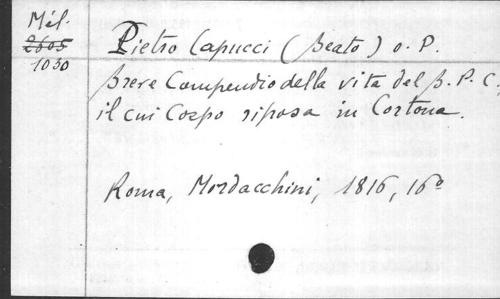 Mél.
2605
1030
Pietro Capucci (Beato) o. P.
Breve Compendio della vita del B. P. C.,
il cui Corpo riposa in Cortona.
Roma, Mordacchini, 1816, 16º